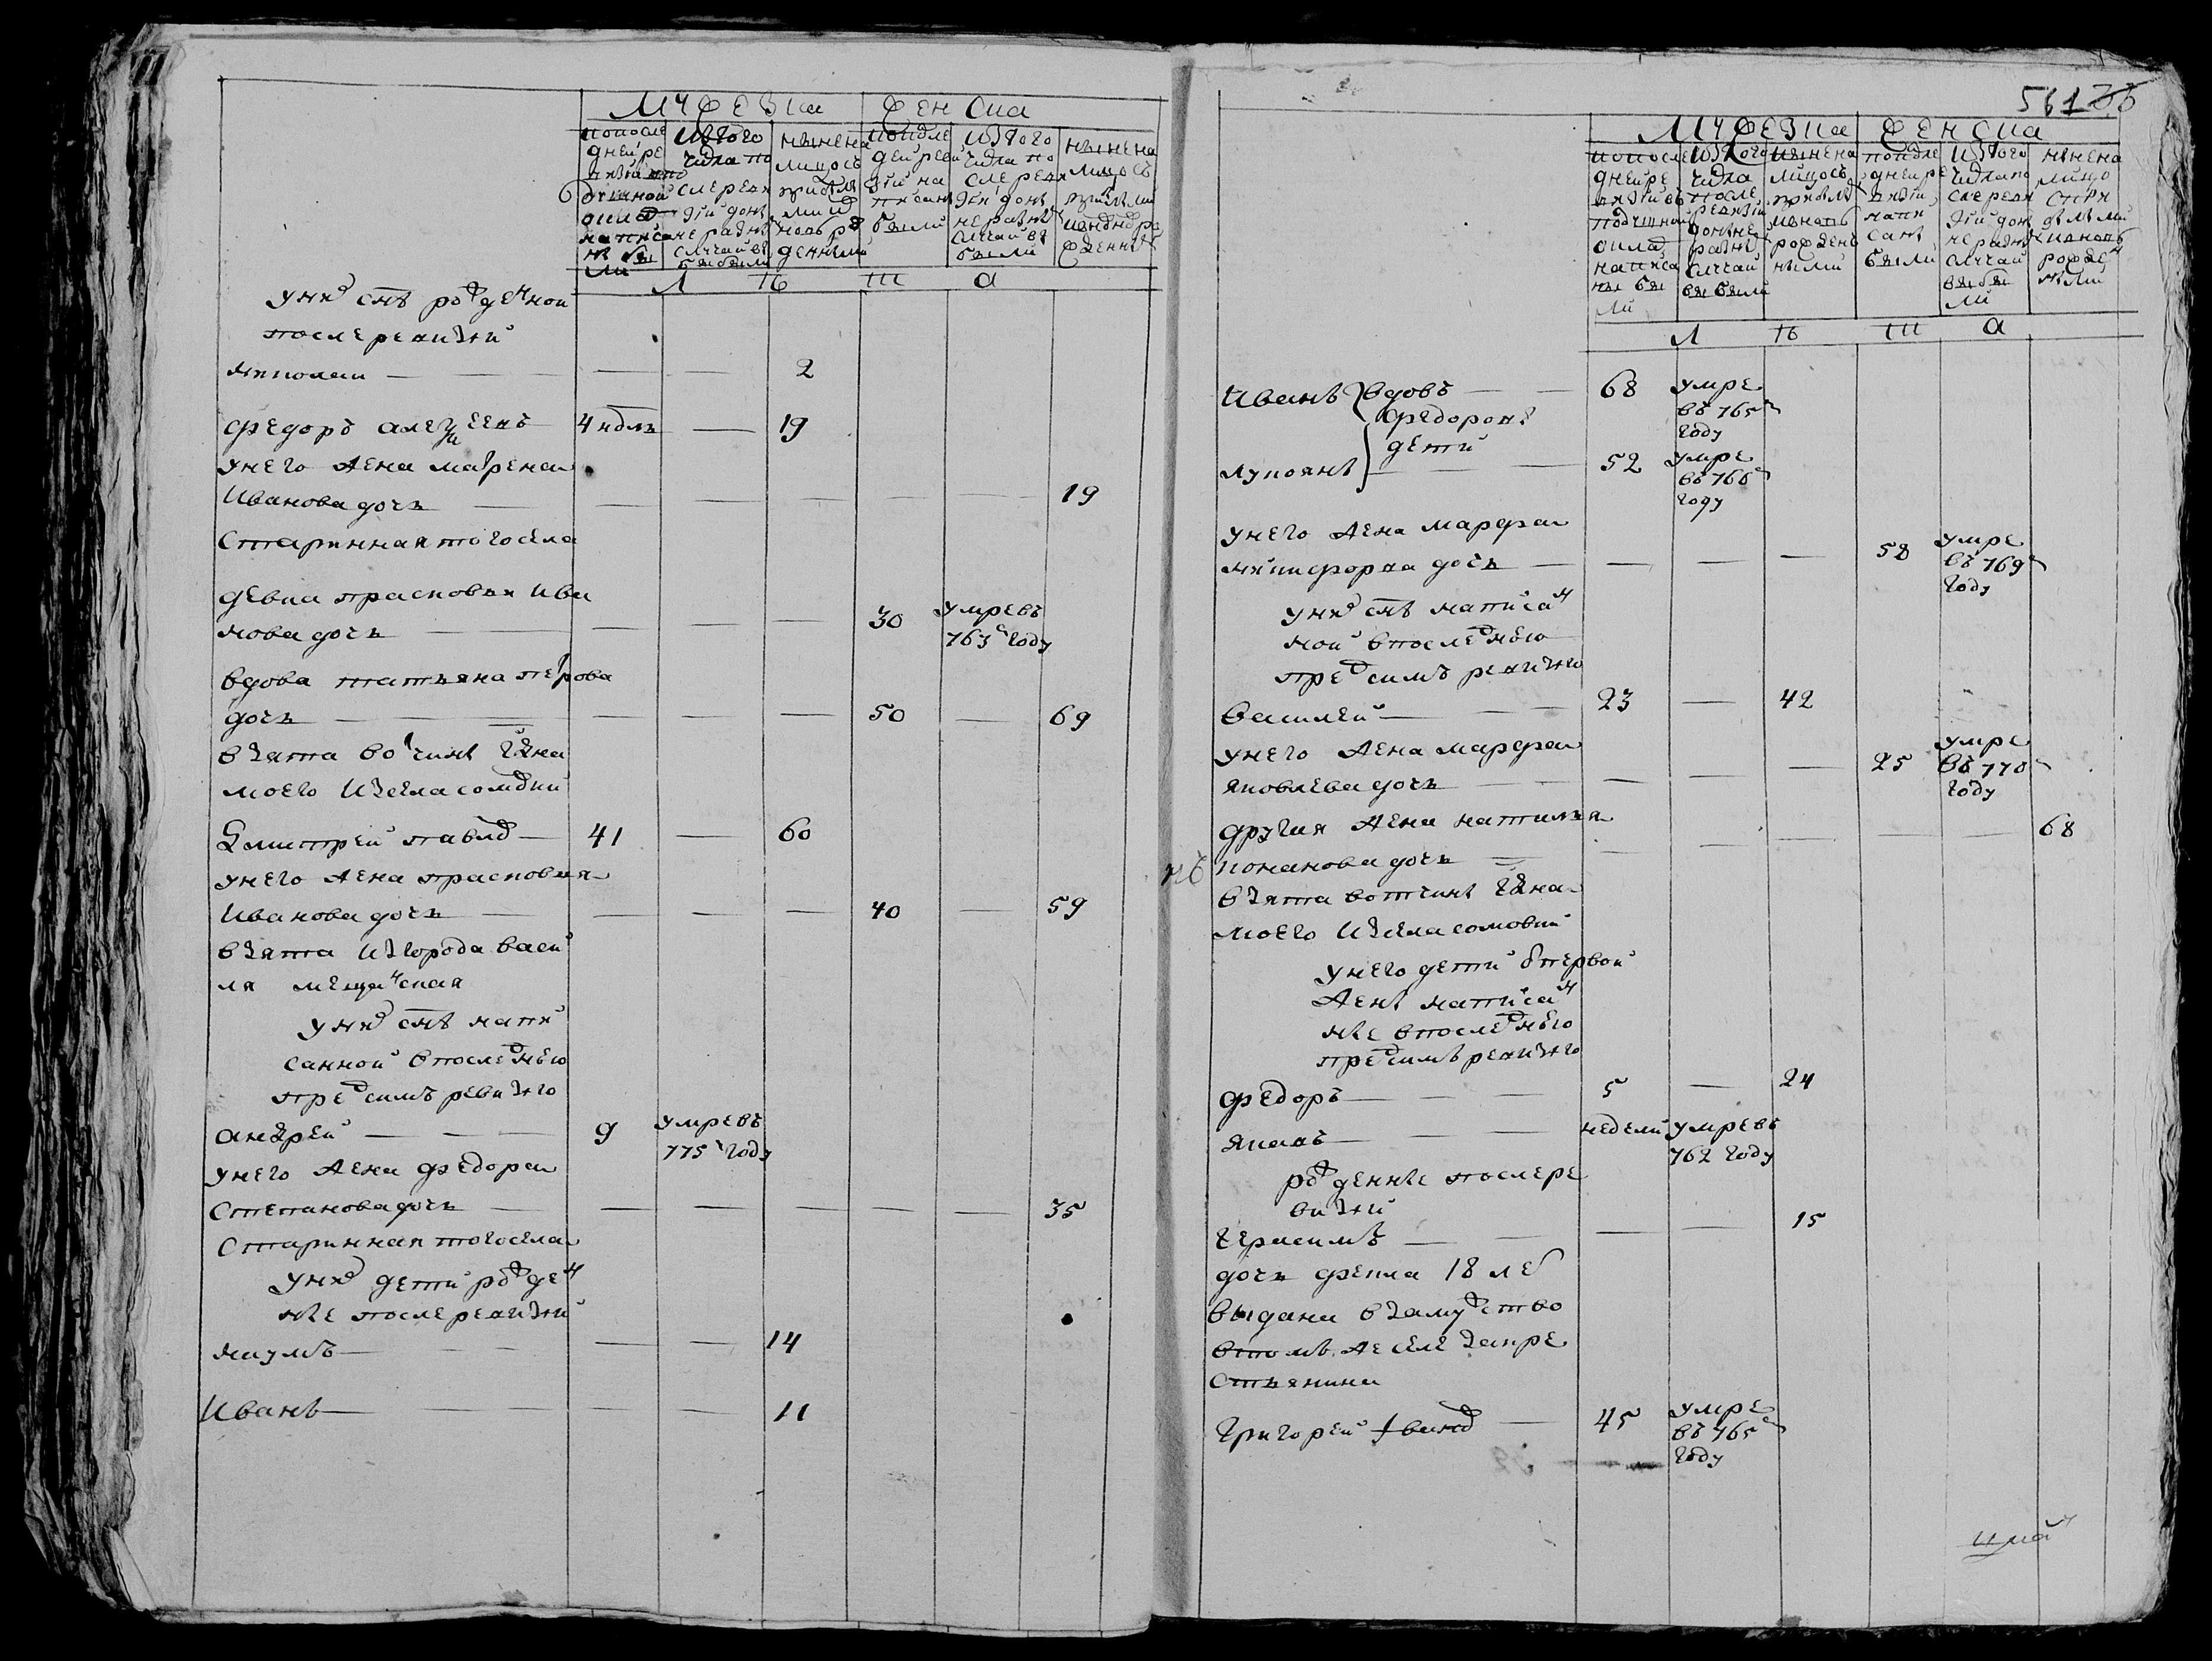 мужеска женска
по последней ревизии по душной силе написаны были
из того числа после ревизии до нне разными случаи выбыли
ныне на лицо съ прибылыми и новорожденными
по последней ревизии написаны были
из того числа после ревизии до нне разными случаи выбыли
ныне на лицо съ прибылыми и новорожденными
Л Ѣ Т А
у них снъ рожденной
после ревизии
Николай — — — — — 2
Федоръ Алексеевъ 4 ндль — 19
у него жена Матрена
Иванова дочь — — — — — — 19
старинная того села
девка Прасковья Ива
нова дочь — — — — 30 умре въ
763м году
вдова Татьяна Петрова
дочь — — — — — — 50 — 69
взята вотчины гдна
моего из села сомовки
Дмитрей Павлов — 41 — 60
у него жена Прасковья
Иванова дочь — — — — 40 — 59
взята из города Васи
ля мещанская
у них снъ напи
санной в последнею
пред симъ ревизию
Андрей — — — 9 умре въ
775м году
у него жена Федора
Степанова дочь — — — — — — 35
старинная того села
у них дети рожден
ные после ревизии
Наумъ — — — — — 14
Иванъ — — — — — 11
561
мужеска женска
по последней ревизии въ подушной силе написаны были
из того числа после ревизии до нне разными случаи выбыли
ныне на лицо съ прибылыми и новь рожденными
по последней ревизии написаны были
из того числа после ревизии до нне разными случаи выбыли
ныне на лицо с прибылыми и новь рожденными
Л Ѣ Т А
Иванъ вдовъ — — 68 умре
Федоровы въ 765м
дети году
Лукоянъ — — 52 умре
въ 766м
году
у него жена Марфа
Никифорва дочь — — — — 58 умре
въ 769м
году
у них снъ написан
ной в последнею
пред симъ ревизию
Василей — — — 23 — 42
у него жена Марфа
Яковлева дочь — — — — 25 умре
въ 770м
году
другая жена Наталья
Романова дочь — — — — — — 68
взята вотчины гдна
моего из села сомовки
у него дети от первой
жены написан
ные в последнею
пред симъ ревизию
Федоръ — — — 5 — 24
Яковъ — — — недели умре въ
762 году
рожденные после ре
визии
Герасимъ — — — — 15
дочь Фекла 18 лет
выдана в замужство
в томъ же селе за кре
стьянина
Григорей — 45 умре
въ 765м
году